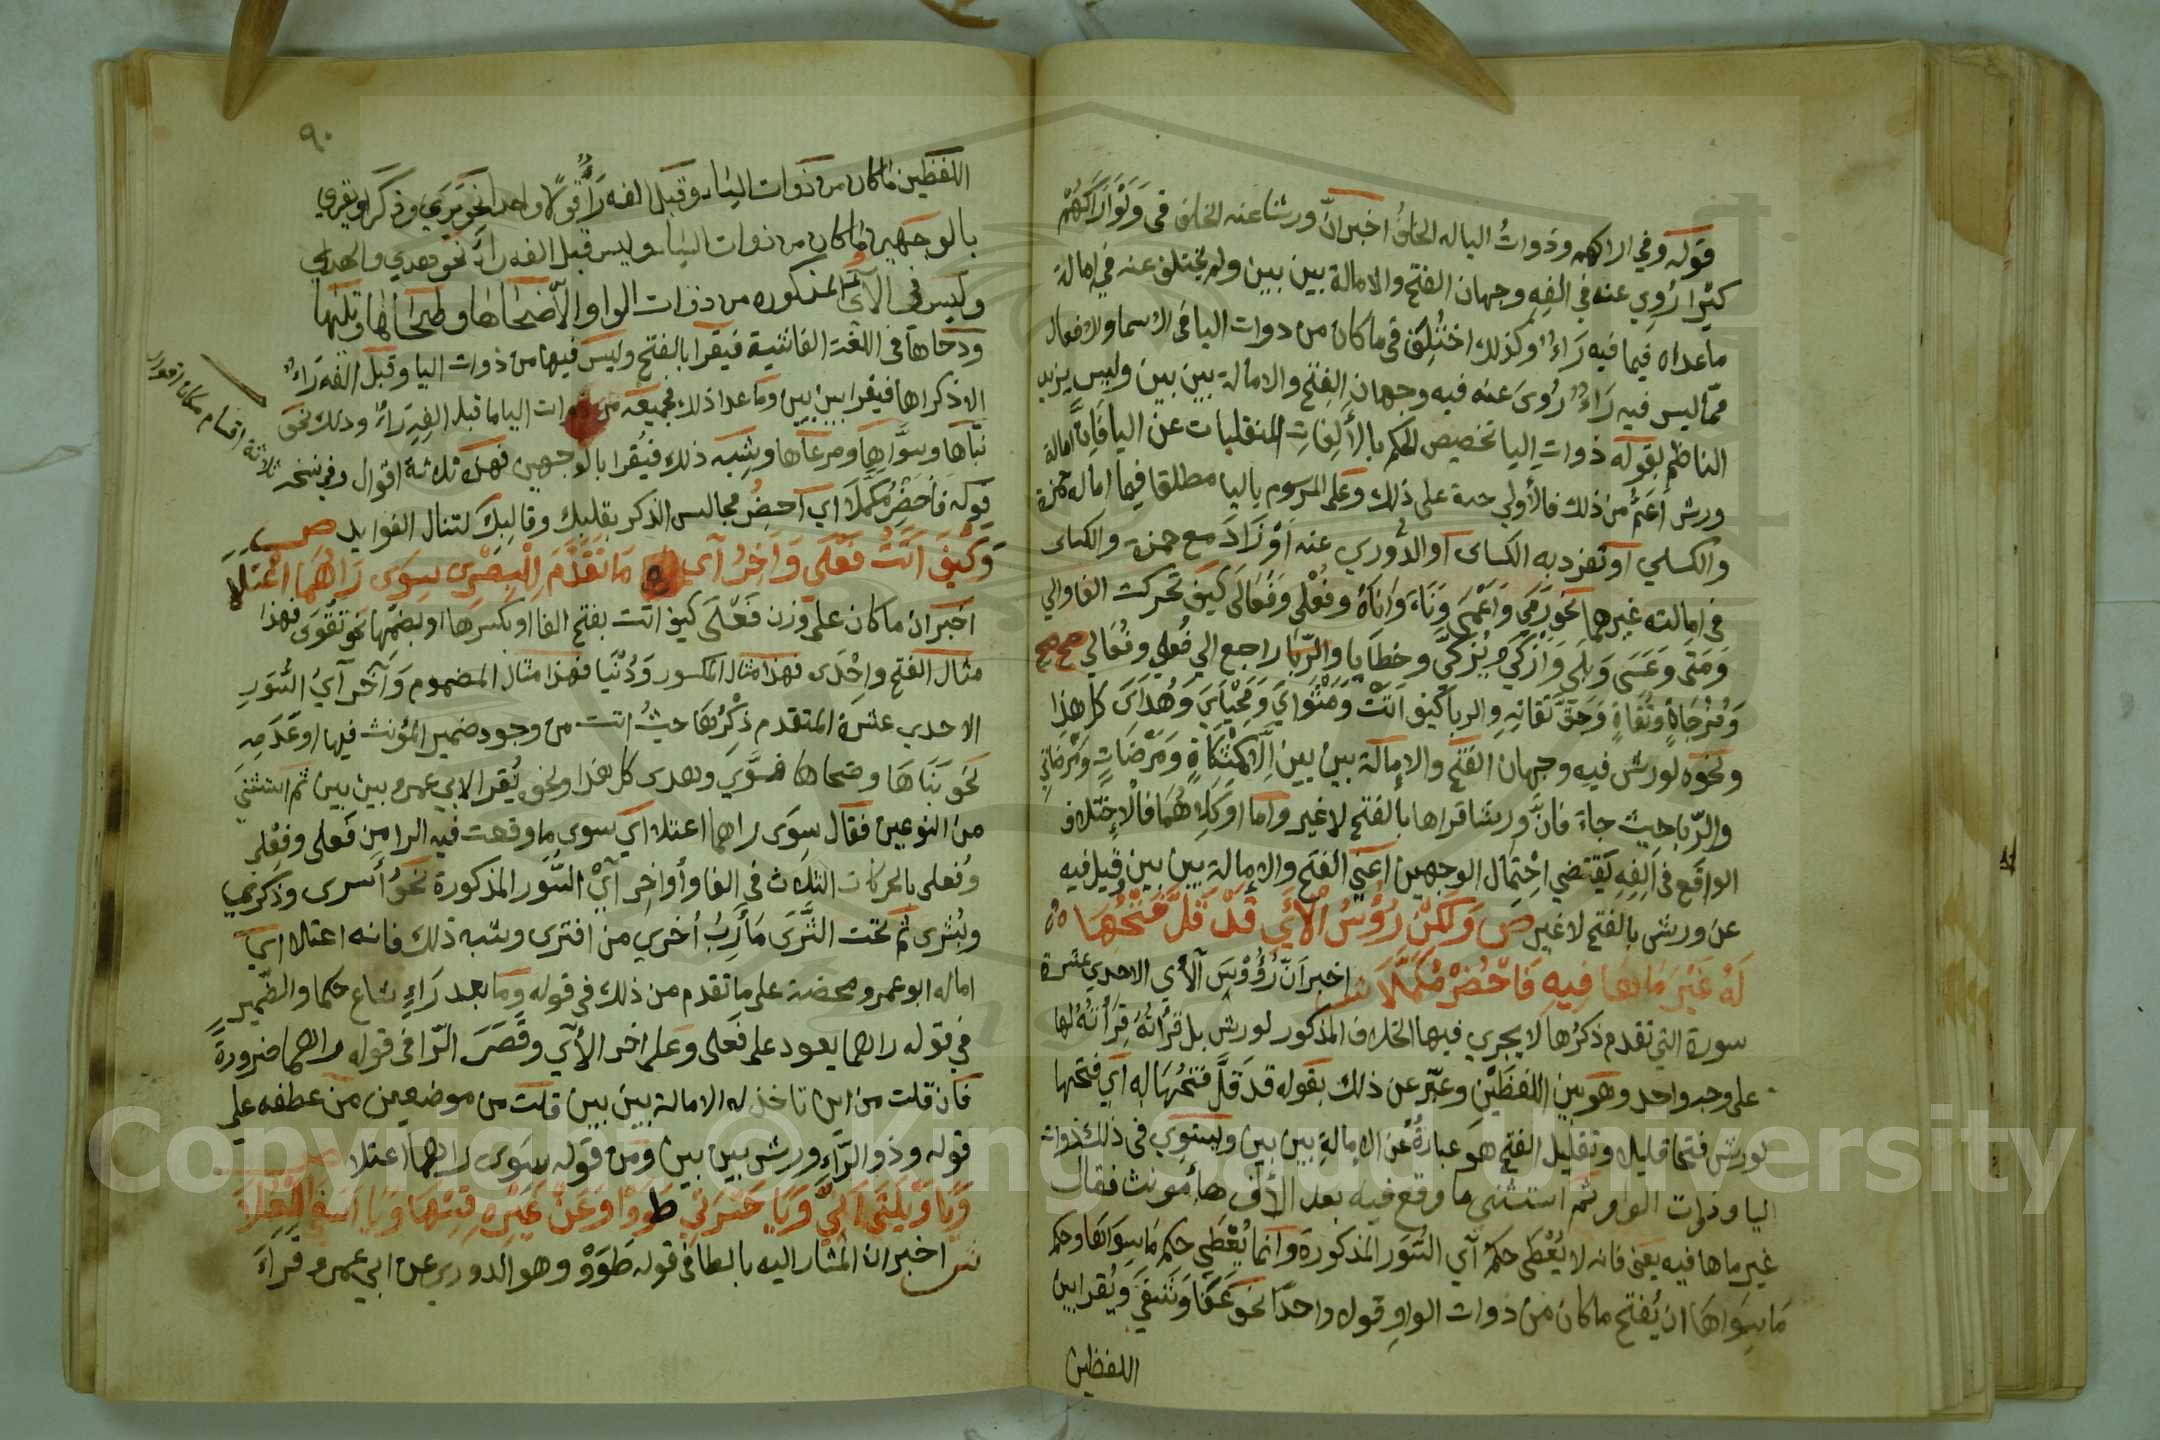 قوله وفي اراكهم وذوات الياله الخلف اخبر انّ ورشا عنه الخلف في وَلَوْ أَرَاكَهُمْ
كثيرا رُوي عنه في الفه وجهان الفتح والامالة بين بين ولم يختلف عنه في امالة
ماعداه فيما فيه رَاءٌ وكذلك اختُلِفَ في ما كان من دوات اليا في الاسما والافعال
ممّا ليس فيه رَاءٌ رُوىَ عنه فيه وجهان الفتح والامالة بين بين وليس يريد
الناظم بقوله ذوات اليا تخصيص الحكم بالألفات المنقلبات عن اليا فان امالة
ورش أعمّ من ذلك فالأولي حمله على ذلك وعلى المرسوم باليا مطلقا فيما اماله حمزة
والكسلي أو تفرد به الكساى أو الدّوري عنه أوْ زَادَ مع حمزة والكساى
في امالته غيرهما نحو رَمَي وَاَعْمَى وَنَاءَ وَاِنَاهُ وفُعْلى وَفَعَالَى كيف تحركت الفا والي
وَمَتَى وَعَسَى وَبَلَى وَاَزْكَي ويُزكَّى وخطَايا والرّبا راجع الي فُعلي وفُعَالي صح صح
وَمُزْجَاةٍ وتُقَاةٍ وَحَقَّ تُقاتِهِ والرءيا كيف اَتَتْ وَمَثْوَايَ وَمَحْيَايَ وَهُدَايَ كل هذا
ونحوه لورش فيه وجهان الفتح والامالة بين بين الّا كمشكَاةٍ وَمَرْضَاتِ ومرضاتي
والرّبا حيث جاءَ فانّ ورشا قراها بالفتح لا غير واما اوكِلاهُمَا فالاختلاف
الواقع في الفِهِ يَقتضي احتمال الوجهين اَعني الفتح والامالة بين بين وقيل فيه
عن ورش بالفتح لا غير ص وَلَكِنْ رُؤُسُ الْآيِ قَدْ قَلَّ فَتْحُهَا
لَهُ غَيْرَ مَاهَا فِيهِ فَاحْضُرْ مُكَمَّلَا ش اخبر انّ رُؤُوْسَ الآي الاحدي عشرة
سورة التي تقدم ذكرُها لا يجري فيها الخلاف المذكور لورش بل قرأتُهُ قِرَأتهُ لها
على وجه واحد وهو بين اللفظَين وعبّر عن ذلك بقوله قد قلَّ فتحُهَا له أي فتحها
لورش فتحا قليلا وتقليل الفتح هو عبارةٌ عن الامالة بين بين ويستوي في ذلك ذوات
اليا وذوات الواو ثم استثنى ما وقع فيه بعد الألف هاءُ مونث فقال
غير ما ها فيه يعنى فانه لا يُعْطَى حكمُ آي السُّوَر المذكورة وانما يُعْطَى حكم ما سِوَاهَا وحكم
مَا سِوَاهَا ان يُفتَح ما كان من ذوات الواو قولا واحدًا نحو عَفَا وَشَفَي ويُقرا بين
اللفظين
٩٠
اللفظين ما كان من ذوات الياء وقبل الفه رَاءٌ قولًا واحدا نحو يَرَي وذكري ويقري
بالوجهين ما كان من ذوات اليا وليس قبل الفه راءٌ نحو هدي والهدي
وليس في الآيِ المذكوره من ذوات الواو الّا ضحاها وطحاها وتلاها
ودحاها في اللغة الفاشية فيقرا بالفتح وليس فيها من ذوات اليا وقبل الفه رَاءٌ
الا ذكراها فيقرا بين بين وما عدا ذلك فجميعه من ذوات اليا ما قبل الفِه رَاءٌ وذلك نحو
بنَاها وسوّاها ومرعاها وشِبه ذلك فيُقرا بالوجهين فهذه ثلاثة اقوال وفي نسخه ثلاثة اقسام مكان اقوال
قوله فَاحْضُرْ مُكَمَّلَا اي احضُر مجالس الذكر بقلبك وقالبكَ لتنال الفوايد ص
وَكَيْفَ اَتَتْ فَعْلَى وَاَخِرُ آيِ مَا تَقَدَّمَ لِلْبَصْرِي سِوَى رَاهُمَا اعْتَلَا
اخبَرَ ان ما كان على وزن فَعْلَى كيف اتت بفتح الفا او بكسرها او بضمّها نحو تَقْوَى فهذا
مثال الفتح واِحْدَى فهذا مثال المكسور وَدُنْيَا فهذا مثال المضموم وَآخر آيُ السُّوَرِ
الاحدي عشرة المتقدم ذِكْرُهَا حيثُ اتت من وجود ضمير المؤنث فيها او عَدَمِهِ
نحو بَنَاهَا وضحاها فسَوَّي وهدى كل هذا ونحوه يُقرا لابي عمرو بين بين ثم استثنَي
من النوعين فقال سوى راهما اعتلا اي سوى ما وقعت فيه الرا من فَعلى وفِعْلى
وفُعلى بالحركات الثلاث في الفا وأواخر آيْ السُّور المذكورة نَحوُ أسرى وذكرى
وبُشرى ثم تحت الثَّرَى مَأَربُ أخري من افترى وشبه ذلك فانه اعتلا اي
اماله ابو عمرو محضة على ما تقدم من ذلك في قوله وما بعد رَاءٍ شاع حكما والضّمير
في قوله راهما يعود على فعلى وعلى اخر الآي وقَصَرَ الرّا في قوله راهما ضرورةً
فان قلت من اين تاخذ له الامالة بين بين قلت من موضعين من عطفه على
قوله وذو الرّاءِ ورش بين بين ومن قوله سوى راهما اعتلا ص
وَيَا وَيْلَتَى اَنَّى وَيَا حَسْرَتَى طَوَوْا وَعَنْ غَيْرِهِ قِسْهَا وَيَا اَسَفَى الْعُلَا
ش اخبر ان المُشار اليه بالطا في قوله طَوَوْا وهو الدوري عن ابي عمرو قَرَاءَ
Copyright © King Saud University